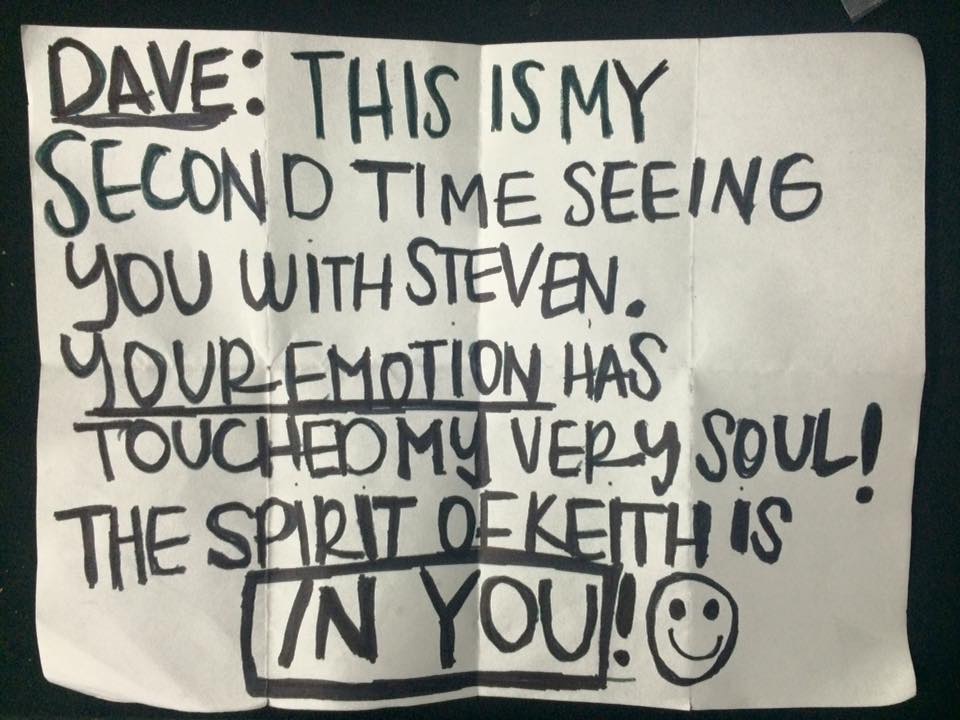 DAVE: THIS IS MY
SECOND TIME SEEING
YOU WITH STEVEN.
YOUR EMOTION HAS
TOUCHED MY VERY SOUL!
THE SPIRIT OF KEITH IS
IN YOU!